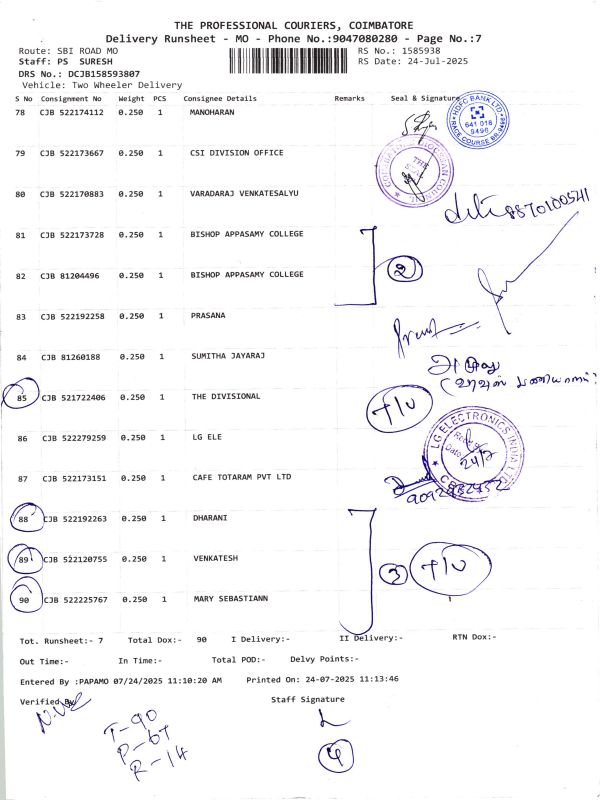 THE PROFESSIONAL COURIERS, COIMBATORE
Delivery Runsheet - MO - Phone No.:9047080280 - Page No.:7
Route: SBI ROAD MO
RS No.: 1585938
Staff: PS SURESH
RS Date: 24-Jul-2025
DRS No.: DCJB158593807
Vehicle: Two Wheeler Delivery
S No Consignment No Weight PCS Consignee Details Remarks Seal & Signature
78 CJB 522174112 0.250 1 MANOHARAN
HDFC BANK LTD
641 018
9496
RACE COURSE BR.
79 CJB 522173667 0.250 1 CSI DIVISION OFFICE
THE
80 CJB 522170883 0.250 1 VARADARAJ VENKATESALYU
8870100541
81 CJB 522173728 0.250 1 BISHOP APPASAMY COLLEGE
2
82 CJB 81204496 0.250 1 BISHOP APPASAMY COLLEGE
83 CJB 522192258 0.250 1 PRASANA
84 CJB 81260188 0.250 1 SUMITHA JAYARAJ
85 CJB 521722406 0.250 1 THE DIVISIONAL
T/U
86 CJB 522279259 0.250 1 LG ELE
LG ELECTRONICS INDIA LTD
24/7
87 CJB 522173151 0.250 1 CAFE TOTARAM PVT LTD
88 CJB 522192263 0.250 1 DHARANI
89 CJB 522120755 0.250 1 VENKATESH
3 T/U
90 CJB 522225767 0.250 1 MARY SEBASTIANN
Tot. Runsheet:- 7 Total Dox:- 90 I Delivery:- II Delivery:- RTN Dox:-
Out Time:- In Time:- Total POD:- Delvy Points:-
Entered By :PAPAMO 07/24/2025 11:10:20 AM Printed On: 24-07-2025 11:13:46
Verified By
Staff Signature
T-90
P-67
R-14
4